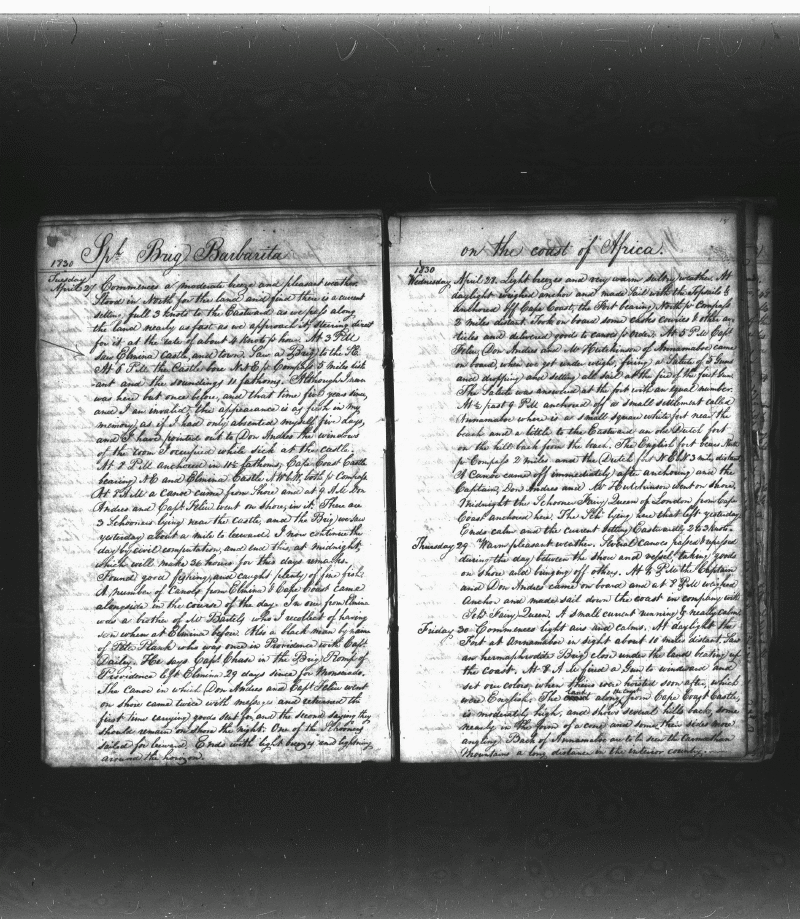 1730 Sph. Brig Barbarita
Tuesday Commences a moderate breeze and pleasant weather.
April 27 Stood in North for the land and find there is a current
setting full 3 knots to the Eastward as we pass along
the land nearly as fast as we approach it, steering direct
for it at the rate of about 4 knots p hour. At 3 P.M
saw Elmina Castle, and town. Saw a Brig to the
At 5 P.M. the Castle bore N.E p Compass 5 miles dist
ant and the soundings 11 fathoms. Although I never
was here but once before, and that time five years since,
and I an invalid, the appearance is as fresh in my
memory, as if I had only absented myself five days,
and I have pointed out to Don Andres the windows
of the room I occupied while sick at the castle.
At 8 P.M anchored in fathoms, Cape Coast Castle
bearing N.E and Elmina Castle N.W.bW, both p Compass
At a canoe came from Shore and at 9 A.M Don
Andres and Capt Feliu went on shore, in it. There are
3 Schooners lying near the Castle, and the Brig we saw
yesterday about a mile to leeward. I now continue the
day by civil computation, and end this, at midnight,
which will make 36 hours for this days remarks.
Found good fishing and caught plenty of fine fish.
A number of Canoes from Elmina & Cape Coast came
alongside in the course of the day. In one from Elmina
was a brother of Mr Bartels who I recollect of having
seen when at Elmina before. Also a black man by name
of Pete Plank who was once in Providence with Capt
Dailey. He says Capt Chase in the Brig Romp of
Providence left Elmina 29 days since for
The Canoe in which Don Andres and Capt Feliu went
on shore came twice with messages and returned the
first time carrying goods sent for, and the second saying they
should remain on shore the night. One of the Schooners
sailed for leeward. Ends with light breezes and lightning
around the horizon.
on the coast of Africa.
1830
Wednesday April 28. Light breezes and very warm sultry weather. At
daylight weighed anchor and made sail with the Topsails &
anchored off Cape Coast, the Fort bearing North p Compass
2 miles distant. Took on board some and other ar
ticles and delivered good to canoes p man. At 5 P.M Capt
Feliu, Don Andres and Mr Hutchinson of Annamaboe came
on board, when we got under weigh, firing a Salute of 5 Guns
and dropping and setting all sail at the fire of the first Gun.
The Salute was answered at the fort with an equal number.
At ½ past 9 P.M anchored off a small settlement called
Annamaboe where is a small square white fort near the
beach and a little to the Eastward an old Dutch fort
on the hill back from the beach. The English fort bears
p Compass 2 miles and the Dutch 3 miles distant
A Canoe came off immediately after anchoring and the
Captain, Don Andres and Mr Hutchinson went on shore.
Midnight the Schooner Fairy Queen of London from Cape
Coast anchored here. The Sch. lying here that left yesterday
Ends calm and the current setting Eastwardly 2 & 3 knots.
Thursday 29 Warm pleasant weather. Several Canoes passed & repassed
during the day between the shore and vessel taking goods
on shore and bringing off others. At P.M the Captain
and Don Andres came on board and at 8 P.M weighed
anchor and made sail down the coast in company with
Sch. Fairy Queen. A small current running & nearly calm
Friday 30 Commences light airs and calms. At daylight the
Fort at Annamaboe in sight about 10 miles distant. Saw
an hermaphrodite Brig close under the land beating up
the Coast. At 8 A.M fired a Gun to windward and
set our colors, when theirs were hoisted soon after, which
were English. The land along the coast from Cape Coast Castle,
is moderately high, and shows several hills back, some
nearly in the form of a cone and some their sides more
angling. Back of Annamaboe are to be seen the
Mountains a long distance in the interior country.